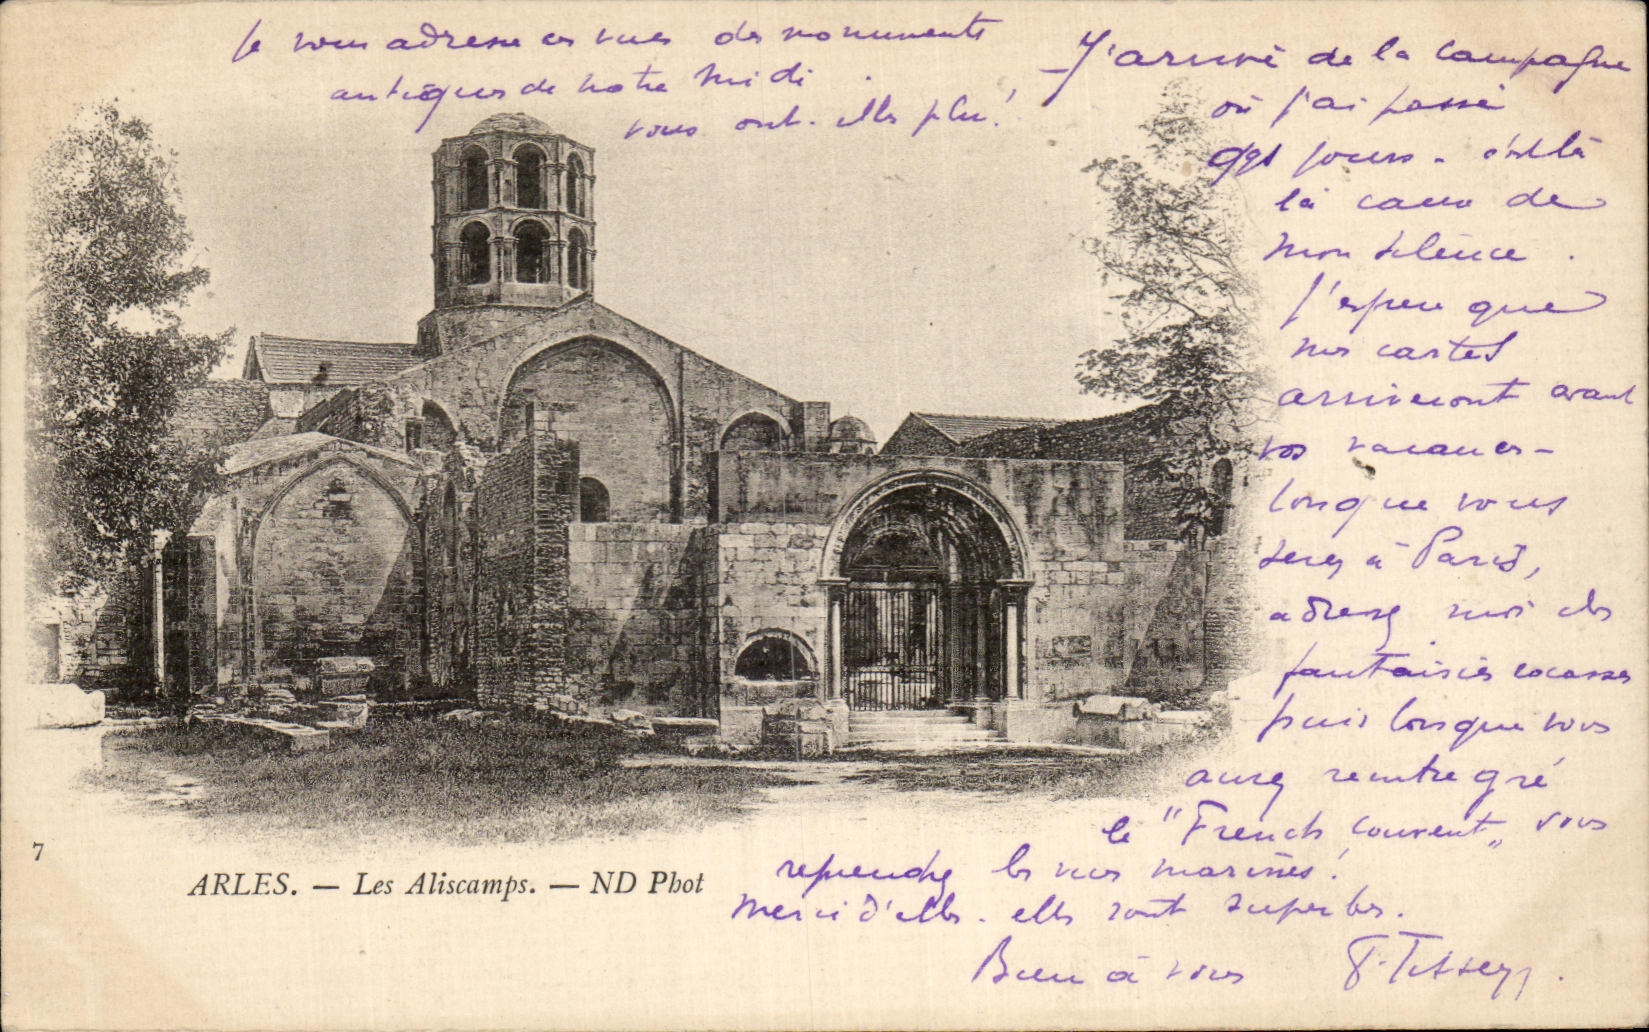 Je vous adresse ces vues des monuments
antiques de notre midi.
vous ont-elles plu!
J'arrive de la campagne
où j'ai passé
qqs jours - c'est là
là cause de
mon silence.
J'espère que
mes cartes
arriveront avant
vos vacances -
lorsque vous
serez à Paris,
adressez moi des
fantaisies cocasses
puis lorsque vous
aurez reintregré
le "French couvent" vous
reprendrez les vues marines!
Merci d'elles. elles sont superbes.
Bien à vous
7
ARLES. — Les Aliscamps. — ND Phot